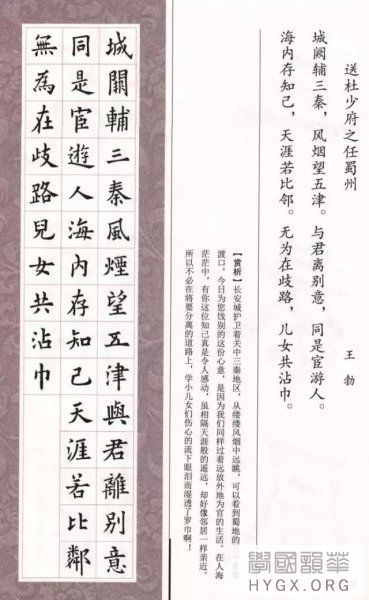 送杜少府之任蜀州
王勃
城阙辅三秦，风烟望五津。与君离别意，同是宦游人。
海内存知己，天涯若比邻。无为在歧路，儿女共沾巾。
【赏析】长安城护卫着关中三秦地区，从缕缕风烟中远眺，可以看到蜀地的
渡口。今日为您饯别的这份心意，是因为我们同样过着远放外地为官的生活。在人海
茫茫中，有你这位知己真是令人感动，虽相隔天涯般的遥远，却好像邻居一样亲近。
所以不必在将要分离的道路上，学小儿女们伤心的流下眼泪而湿透了罗巾啊！
城闕輔三秦風煙望五津與君離別意
同是宦遊人海内存知己天涯若比鄰
無為在歧路兒女共沾巾
學國韻華
HYGX.ORG